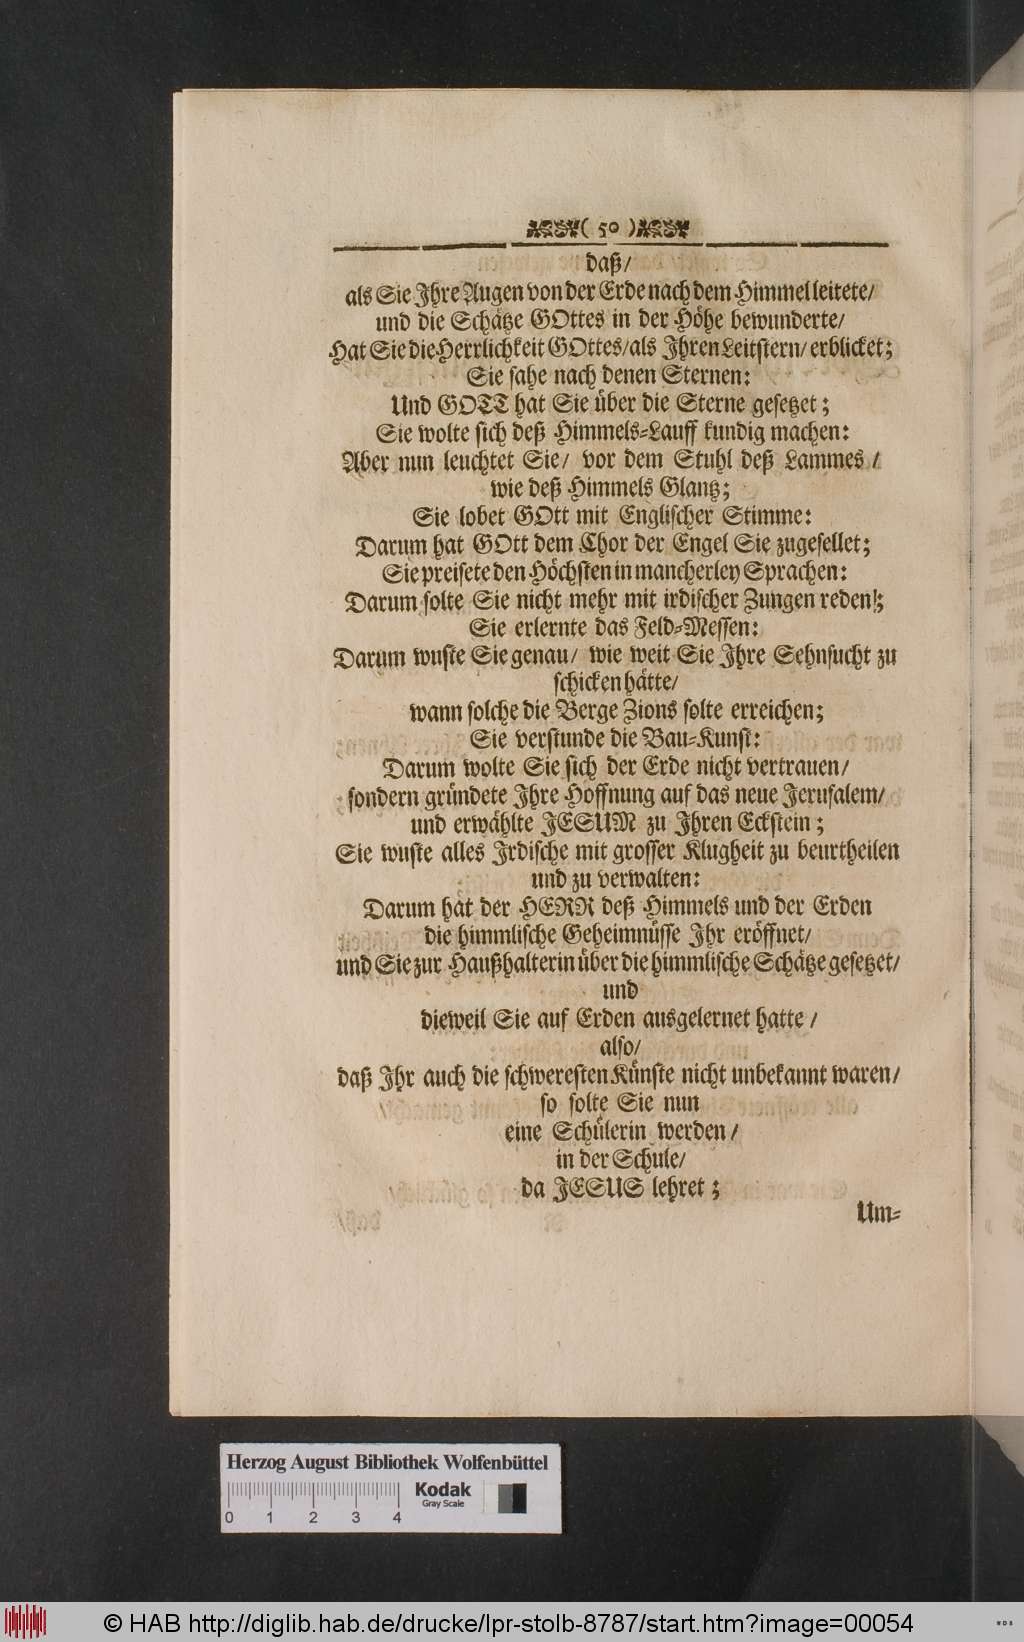 ( 50 )
daß/
als Sie Ihre Augen von der Erde nach dem Himmel leitete/
und die Schätze GOttes in der Höhe bewunderte/
Hat Sie die Herrlichkeit GOttes/als Ihren Leitstern/ erblicket;
Sie sahe nach denen Sternen:
Und GOTT hat Sie über die Sterne gesetzet;
Sie wolte sich deß Himmels-Lauff kundig machen:
Aber nun leuchtet Sie/ vor dem Stuhl deß Lammes/
wie deß Himmels Glantz;
Sie lobet GOtt mit Englischer Stimme:
Darum hat GOtt dem Chor der Engel Sie zugesellet;
Sie preisete den Höchsten in mancherley Sprachen:
Darum solte Sie nicht mehr mit irdischer Zungen reden!;
Sie erlernte das Feld-Messen:
Darum wuste Sie genau/ wie weit Sie Ihre Sehnsucht zu
schicken hätte/
wann solche die Berge Zions solte erreichen;
Sie verstunde die Bau-Kunst:
Darum wolte Sie sich der Erde nicht vertrauen/
sondern gründete Ihre Hoffnung auf das neue Jerusalem/
und erwählte JESUM zu Ihren Eckstein;
Sie wuste alles Irdische mit grosser Klugheit zu beurtheilen
und zu verwalten:
Darum hat der HERR deß Himmels und der Erden
die himmlische Geheimnüsse Ihr eröffnet/
und Sie zur Haußhalterin über die himmlische Schätze gesetzet/
und
dieweil Sie auf Erden ausgelernet hatte/
also/
daß Ihr auch die schweresten Künste nicht unbekannt waren/
so solte Sie nun
eine Schülerin werden/
in der Schule/
da JESUS lehret;
Um-
Herzog August Bibliothek Wolfenbüttel
Kodak
Gray Scale
0 1 2 3 4
© HAB http://diglib.hab.de/drucke/lpr-stolb-8787/start.htm?image=00054